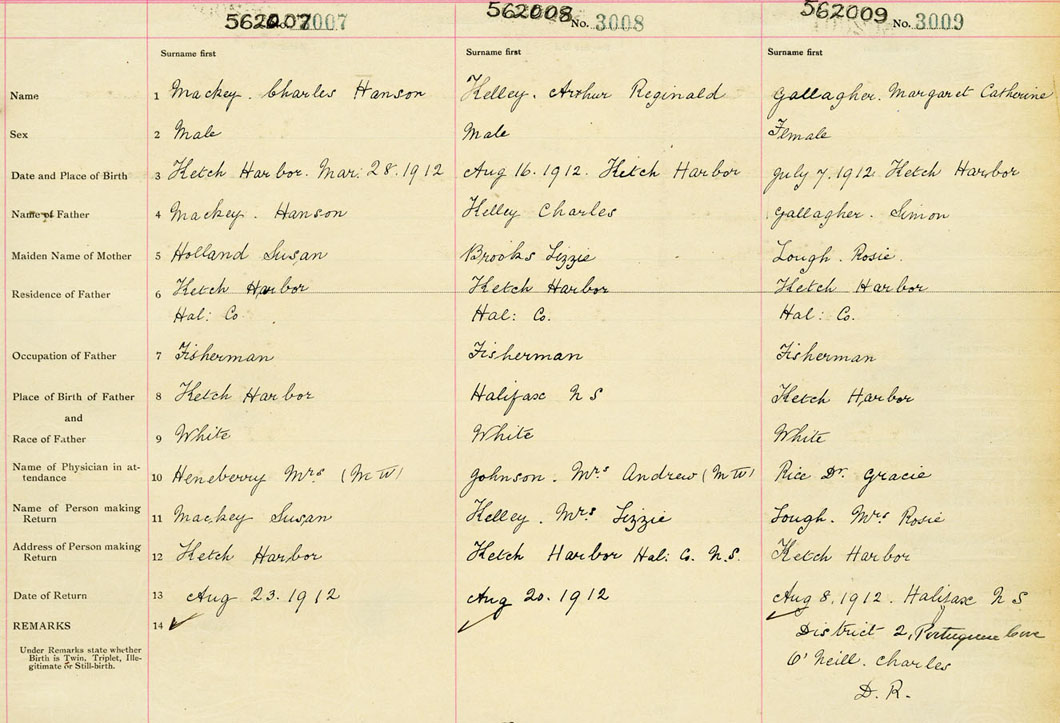 562007 No. 3007 562008 No. 3008 562009 No. 3009
Surname first Surname first Surname first
Name 1 Mackey. Charles Hanson Kelley. Arthur Reginald Gallagher. Margaret Catherine
Sex 2 Male Male Female
Date and Place of Birth 3 Ketch Harbor. Mar: 28. 1912 Aug 16. 1912. Ketch Harbor July 7. 1912. Ketch Harbor
Name of Father 4 Mackey. Hanson Kelley Charles Gallagher. Simon
Maiden Name of Mother 5 Holland Susan Brooks Lizzie Lough. Rosie.
Residence of Father 6 Ketch Harbor Ketch Harbor Ketch Harbor
Hal: Co Hal: Co. Hal: Co.
Occupation of Father 7 Fisherman Fisherman Fisherman
Place of Birth of Father 8 Ketch Harbor Halifax N S Ketch Harbor
and
Race of Father 9 White White White
Name of Physician in at-
tendance 10 Heneberry Mrs (M W) Johnson. Mrs Andrew (M W) Rice Dr. Gracie
Name of Person making
Return 11 Mackey Susan Kelley. Mrs Lizzie Lough. Mrs Rosie
Address of Person making
Return 12 Ketch Harbor Ketch Harbor Hal: Co. N. S. Ketch Harbor
Date of Return 13 Aug 23. 1912 Aug 20. 1912 Aug 8. 1912. Halifax N S
REMARKS 14 District 2, Portuguese Cove
Under Remarks state whether
Birth is Twin, Triplet, Ille-
gitimate or Still-birth.
O'Neill. Charles
D. R.